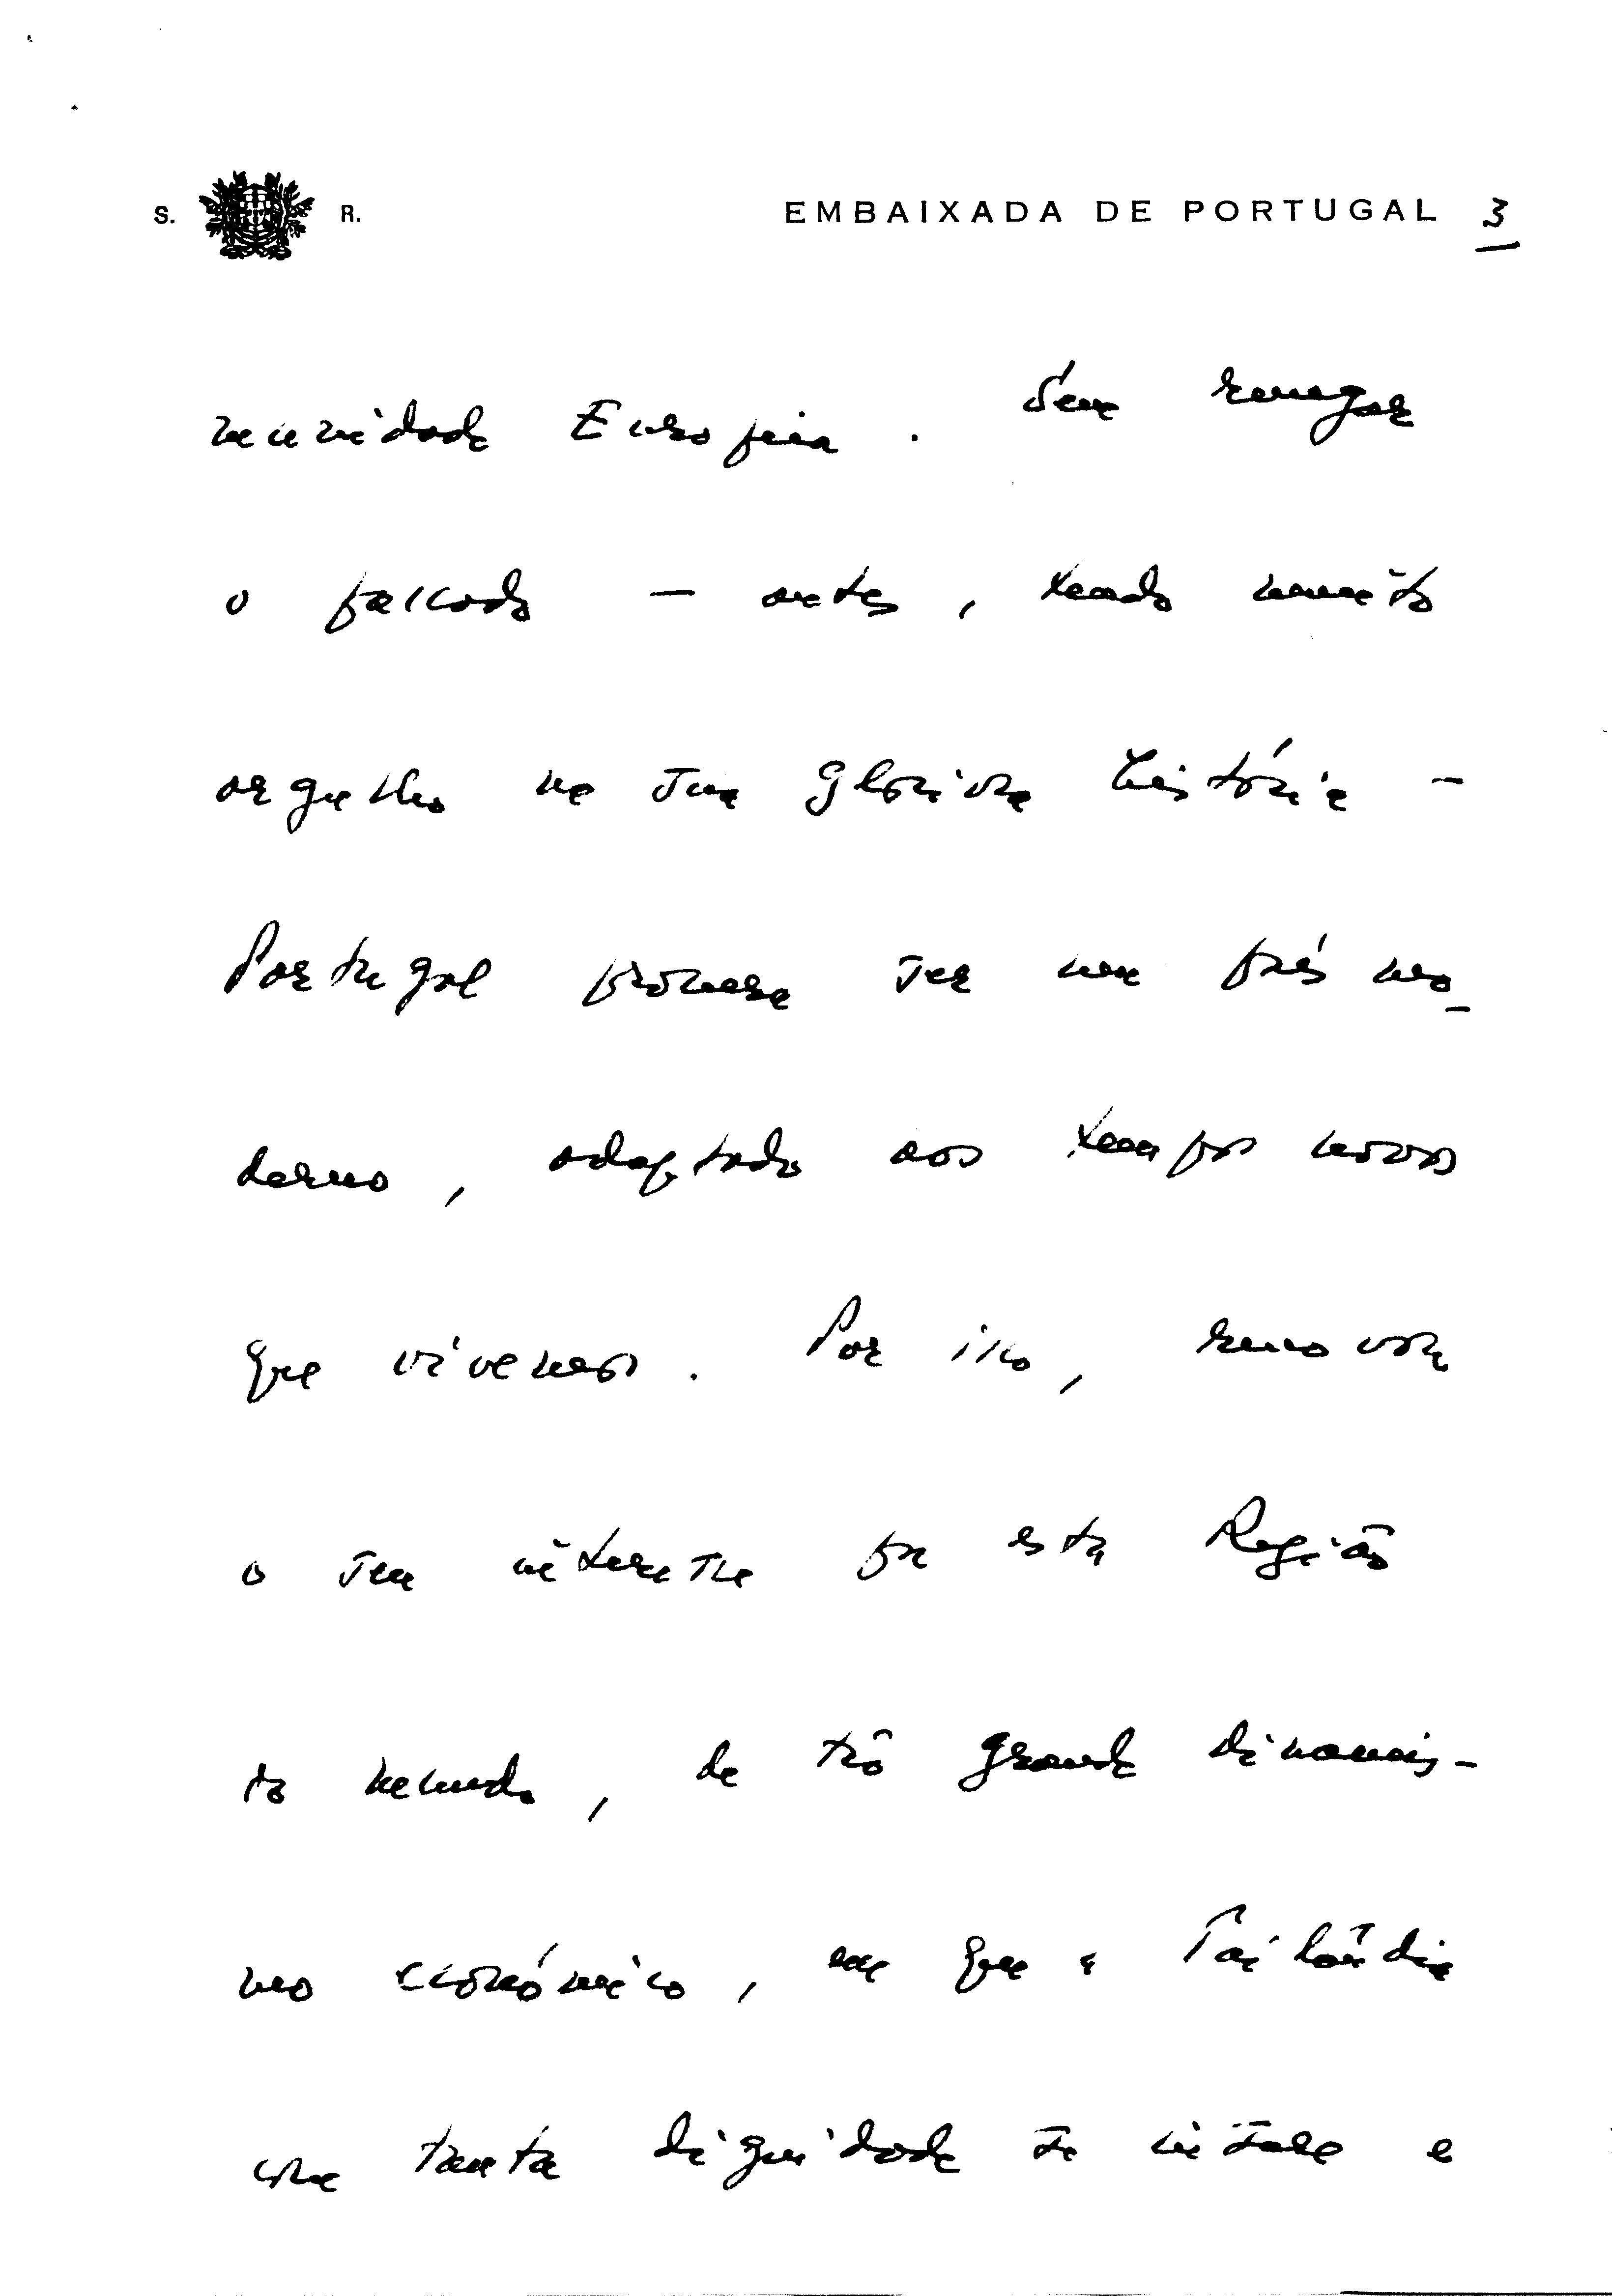 S. R. EMBAIXADA DE PORTUGAL 3
munidade Europeia. Sem renegar
o passado — antes, tendo muito
orgulho na sua gloriosa história —
Portugal procura ser um país mo-
derno, adaptado aos tempos novos
que vivemos. Por isso, renova
o seu interesse por esta Região
do mundo, de tão grande dinamis-
mo económico, em que a Tailândia
com tanta dignidade se insere e